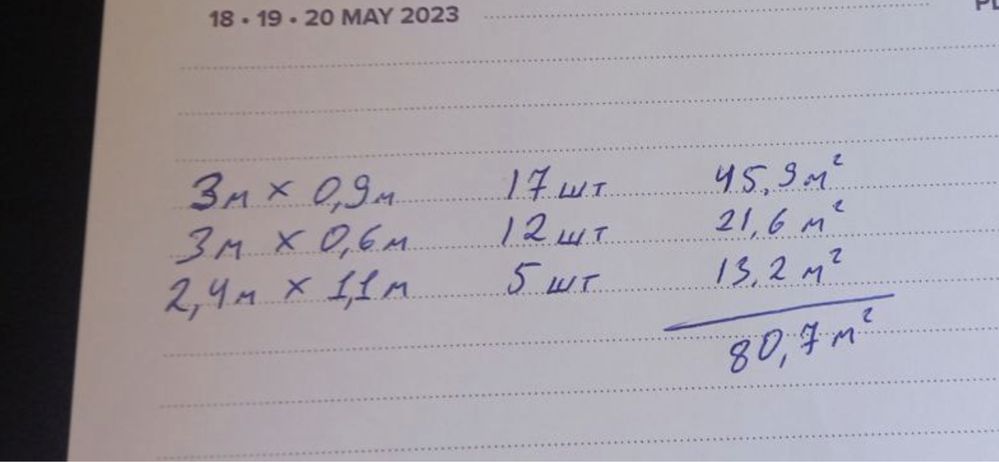 18 • 19 • 20 MAY 2023
3м × 0,9м 17 шт 45,9 м²
3м × 0,6м 12 шт 21,6 м²
2,4м × 1,1м 5 шт 13,2 м²
80,7 м²